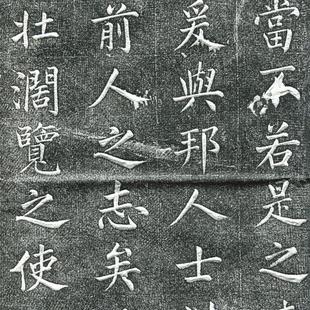 當不若是之
爰與邦人士
前人之志矣
壯濶覽之使